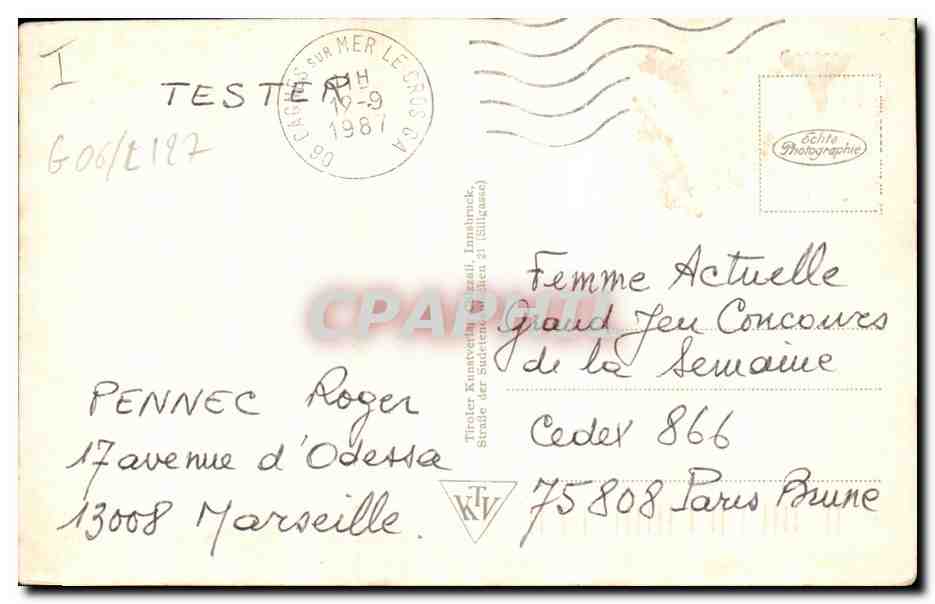 I
TESTER
G06/L187
06 CAGNES SUR MER LE CROS C A
H
12-9
1987
échte
Photographie
Tiroler Kunstverlag Chizzali, Innsbruck,
Straße der Sudetendeutschen 21 (Sillgasse)
CPAPHIL
Femme Actuelle
Grand Jeu Concours
de la Semaine
Cedex 866
75808 Paris Brune
PENNEC Roger
17 avenue d'Odessa
13008 Marseille.
KTV